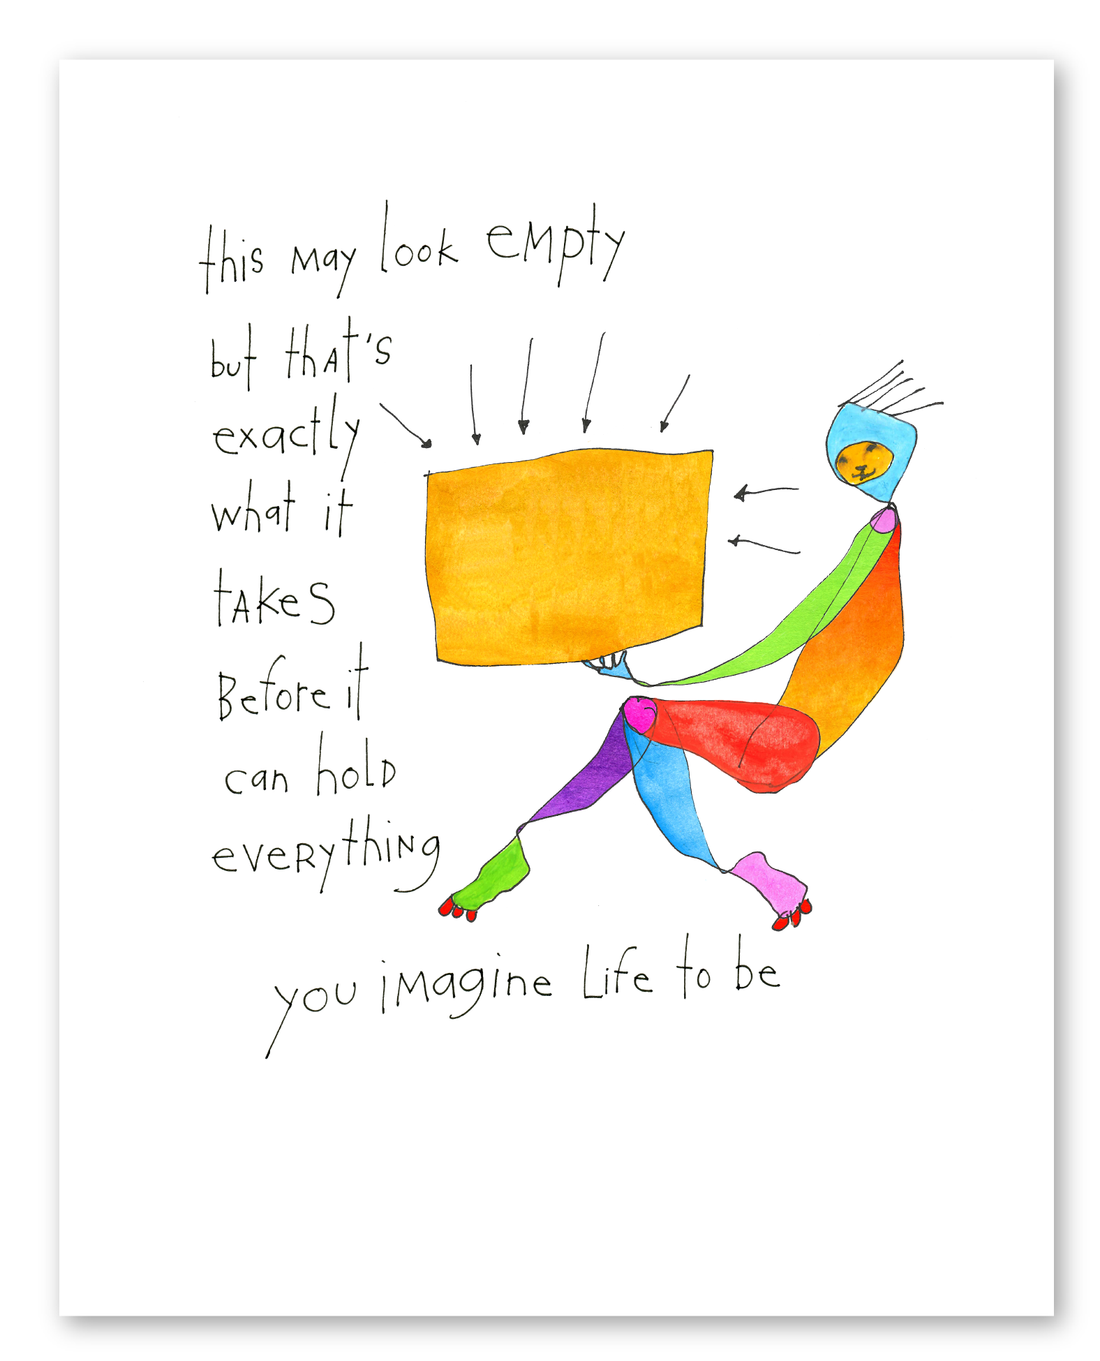 this may look empty
but that's
exactly
what it
takes
Before it
can hold
everything
you imagine Life to be